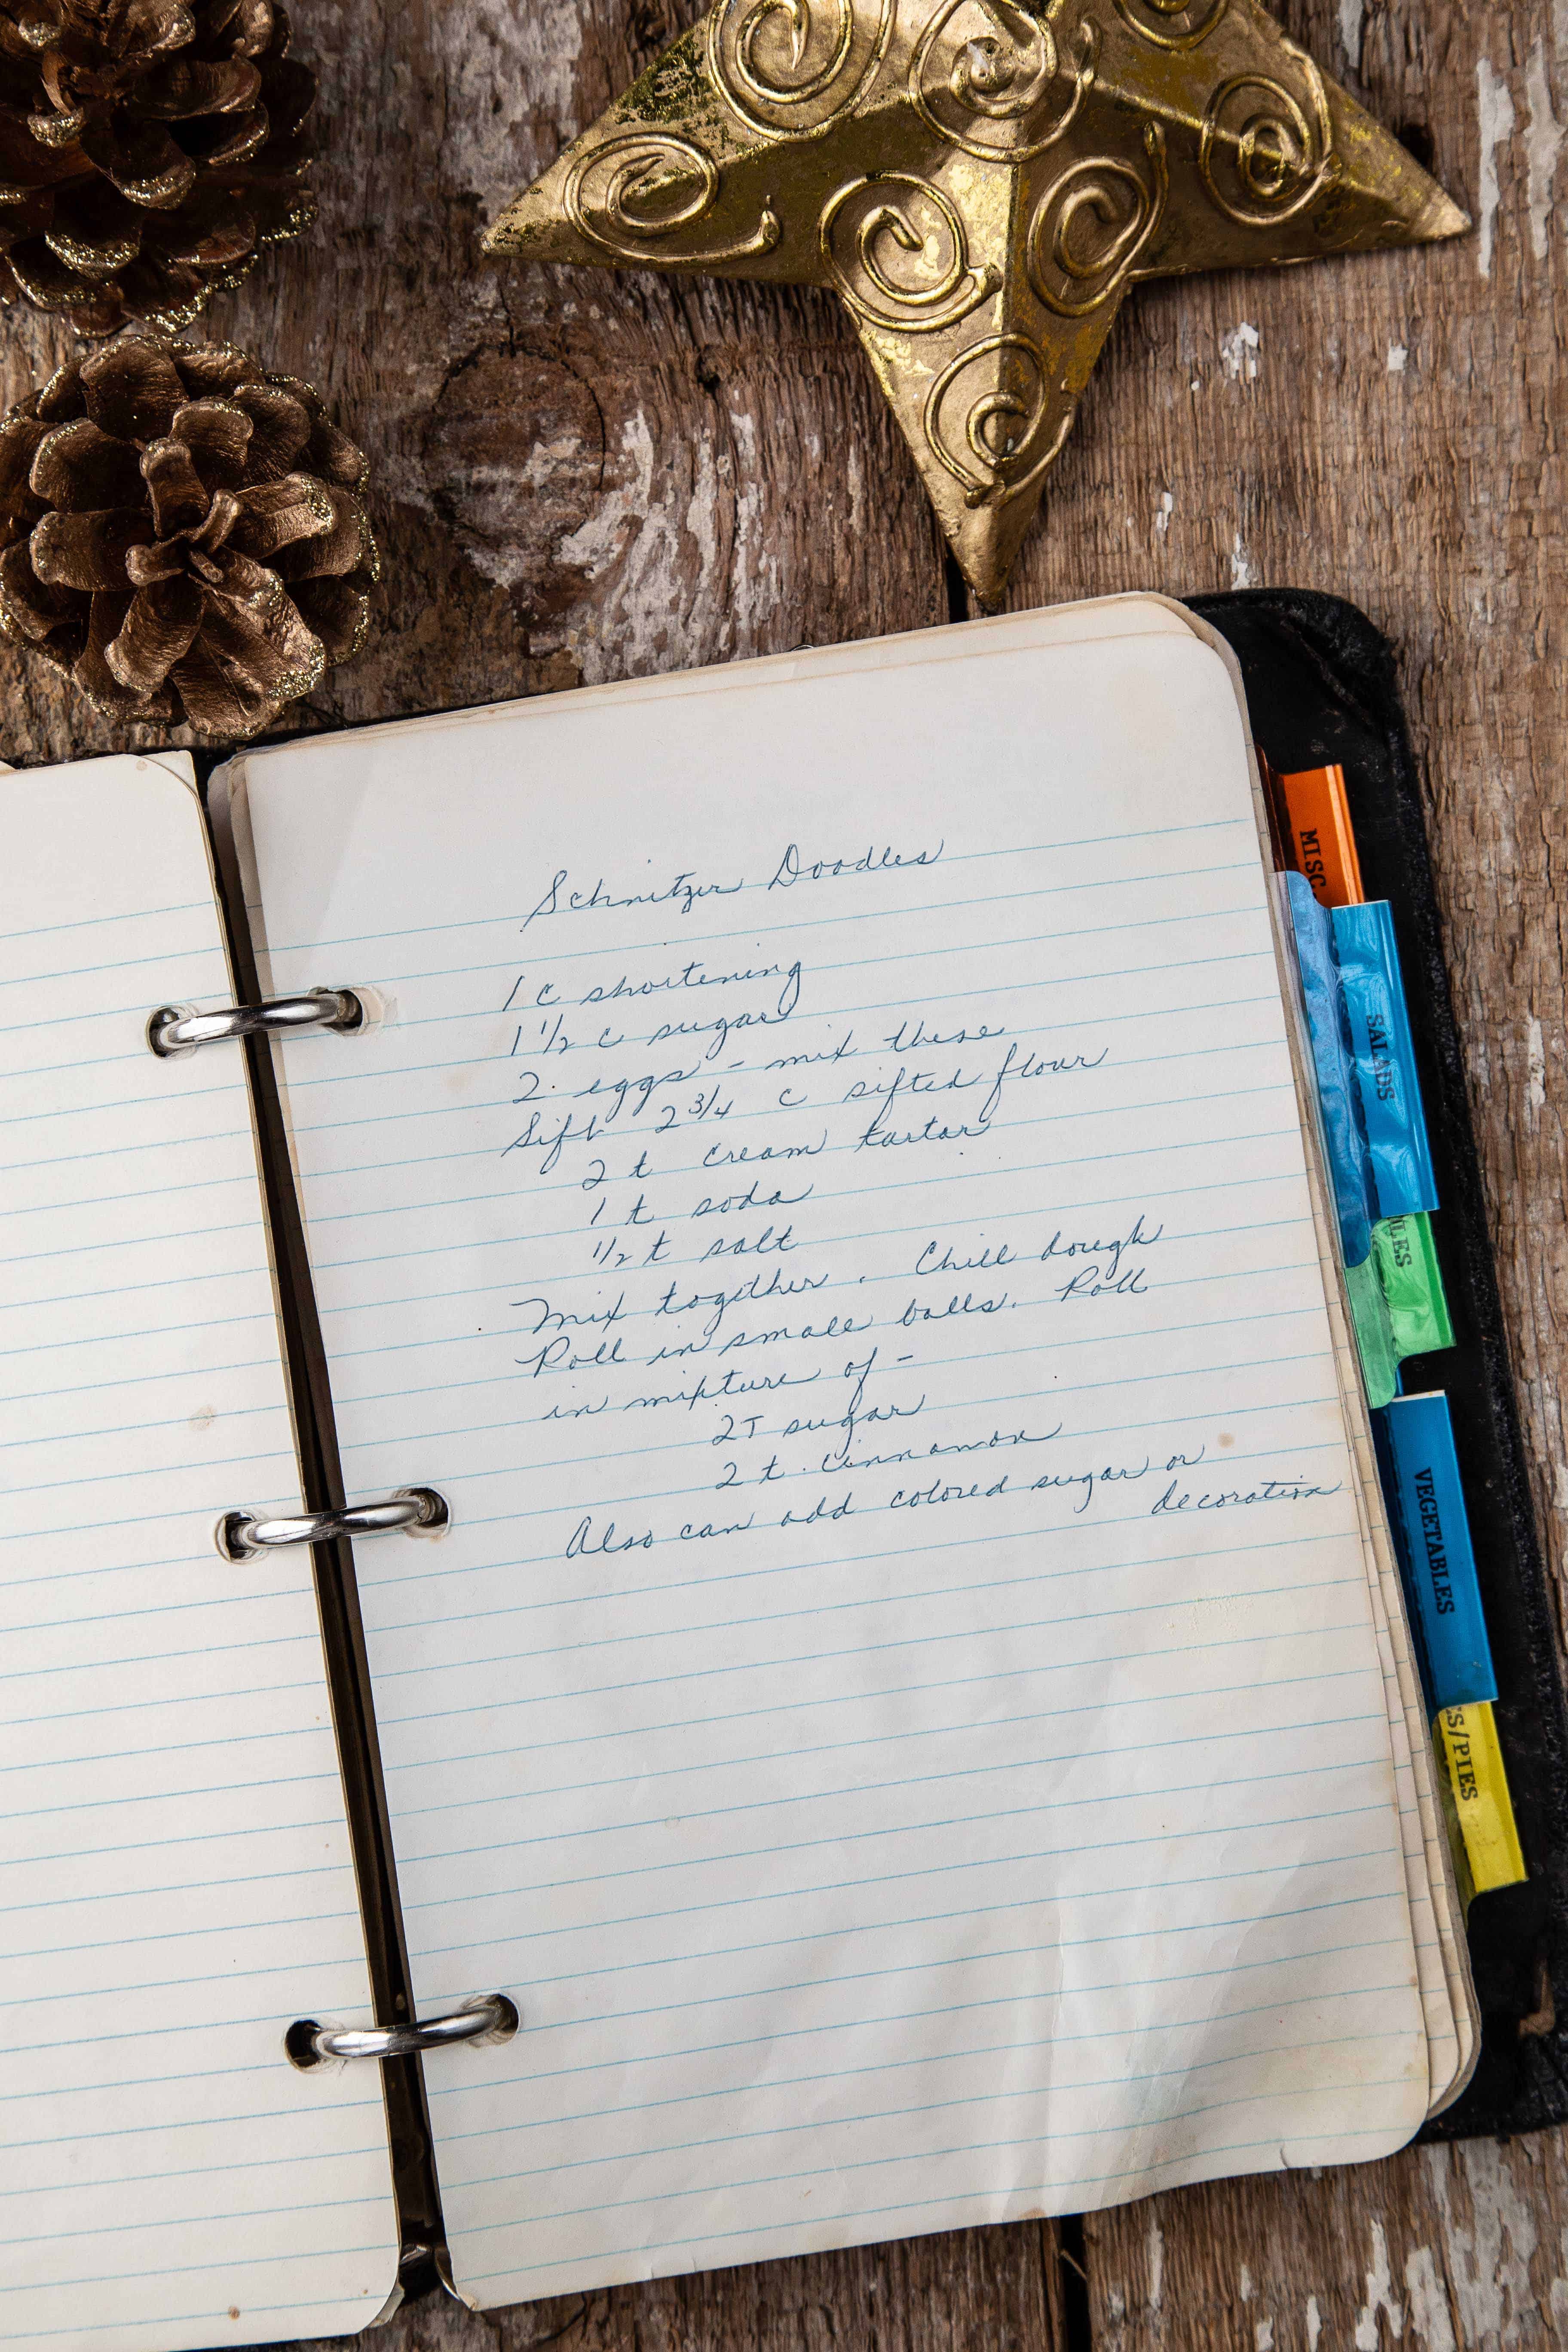 Schnitzer Doodles
1 c shortening
1 1/2 c sugar
2 eggs - mix these
Sift 2 3/4 c sifted flour
2 t cream tartar
1 t soda
1/2 t salt
Mix together. Chill dough
Roll in small balls. Roll
in mixture of -
2T sugar
2 t. cinnamon
Also can add colored sugar or
decoration
MISC
SALADS
LES
VEGETABLES
S/PIES